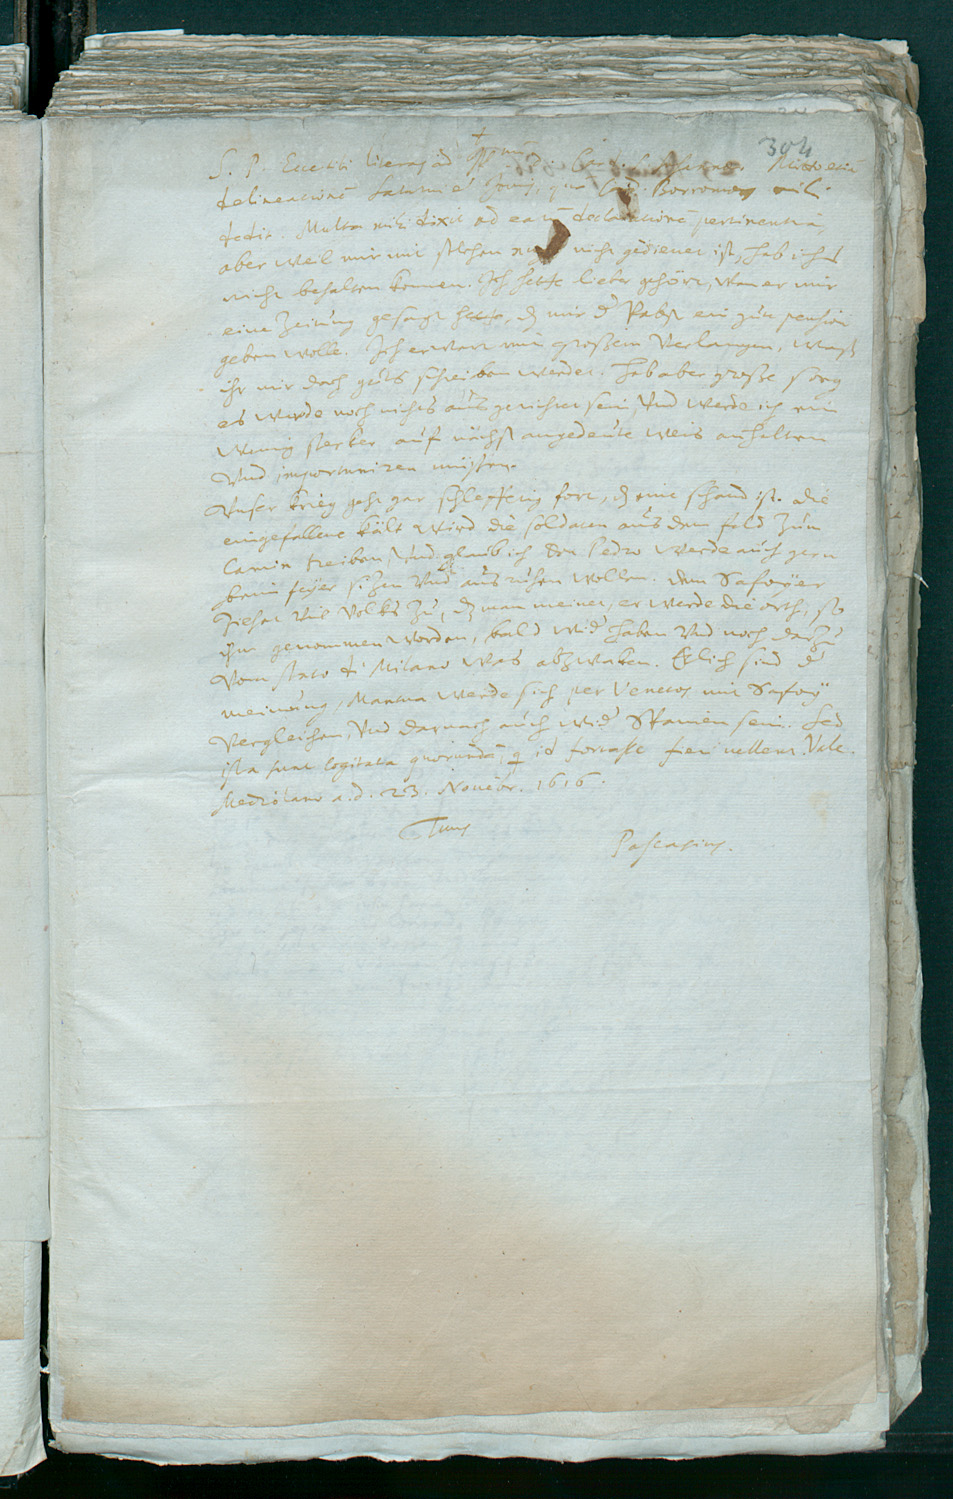 304
S. P. Encriti literas ad Illmū. Card. Mitto etiā
delineationē Saturni e Jovis, quā Card. Borromeus mihi
dedit. Multa mihi dixit ad eam declarationē pertinentia,
aber weil mir mit solchen nicht gedienet ist, hab ichs
nicht behalten konnen. Ich hette lieber gehört, wan er mir
eine Zeitung gesagt hette, dz mir dr Pabst ein gute pension
geben wolle. Ich erwart mit großem verlangen, was
ihr mir doch guts schreiben werdet. Hab aber große sorg
es werde noch nichts aus gerichtet sein, Und werde ich ein
wenig sterker auf nächst angedeute weis anhalten
Und importuniren müssen.
Unser krieg geht gar schlefferig fort, dz eine schand ist. Die
eingefallene kält wird die soldaten aus dem feld zum
Camin treiben, Und glaub ich Don Pedro werde auch gern
beim feyer sitzen Und aus ruhen wollen. Dem Safoyer
ziehet vil volks zu, dz man meinet, er werde die orth, so
ihm genommen worden, bald widr haben Und noch darzu
vom stato di Milano was abzwaken. Etlich sind dr
meinung, Mantua werde sich per Venetos mit Safoy
vergleichen, Und darnach auch widr Spanien sein. Sed
ista sunt cogitata quorundā, q̄ id fortasse fieri vellent. Vale.
Mediolano a. d. 23. Novēbr. 1616.
Tuus
Pascasius.